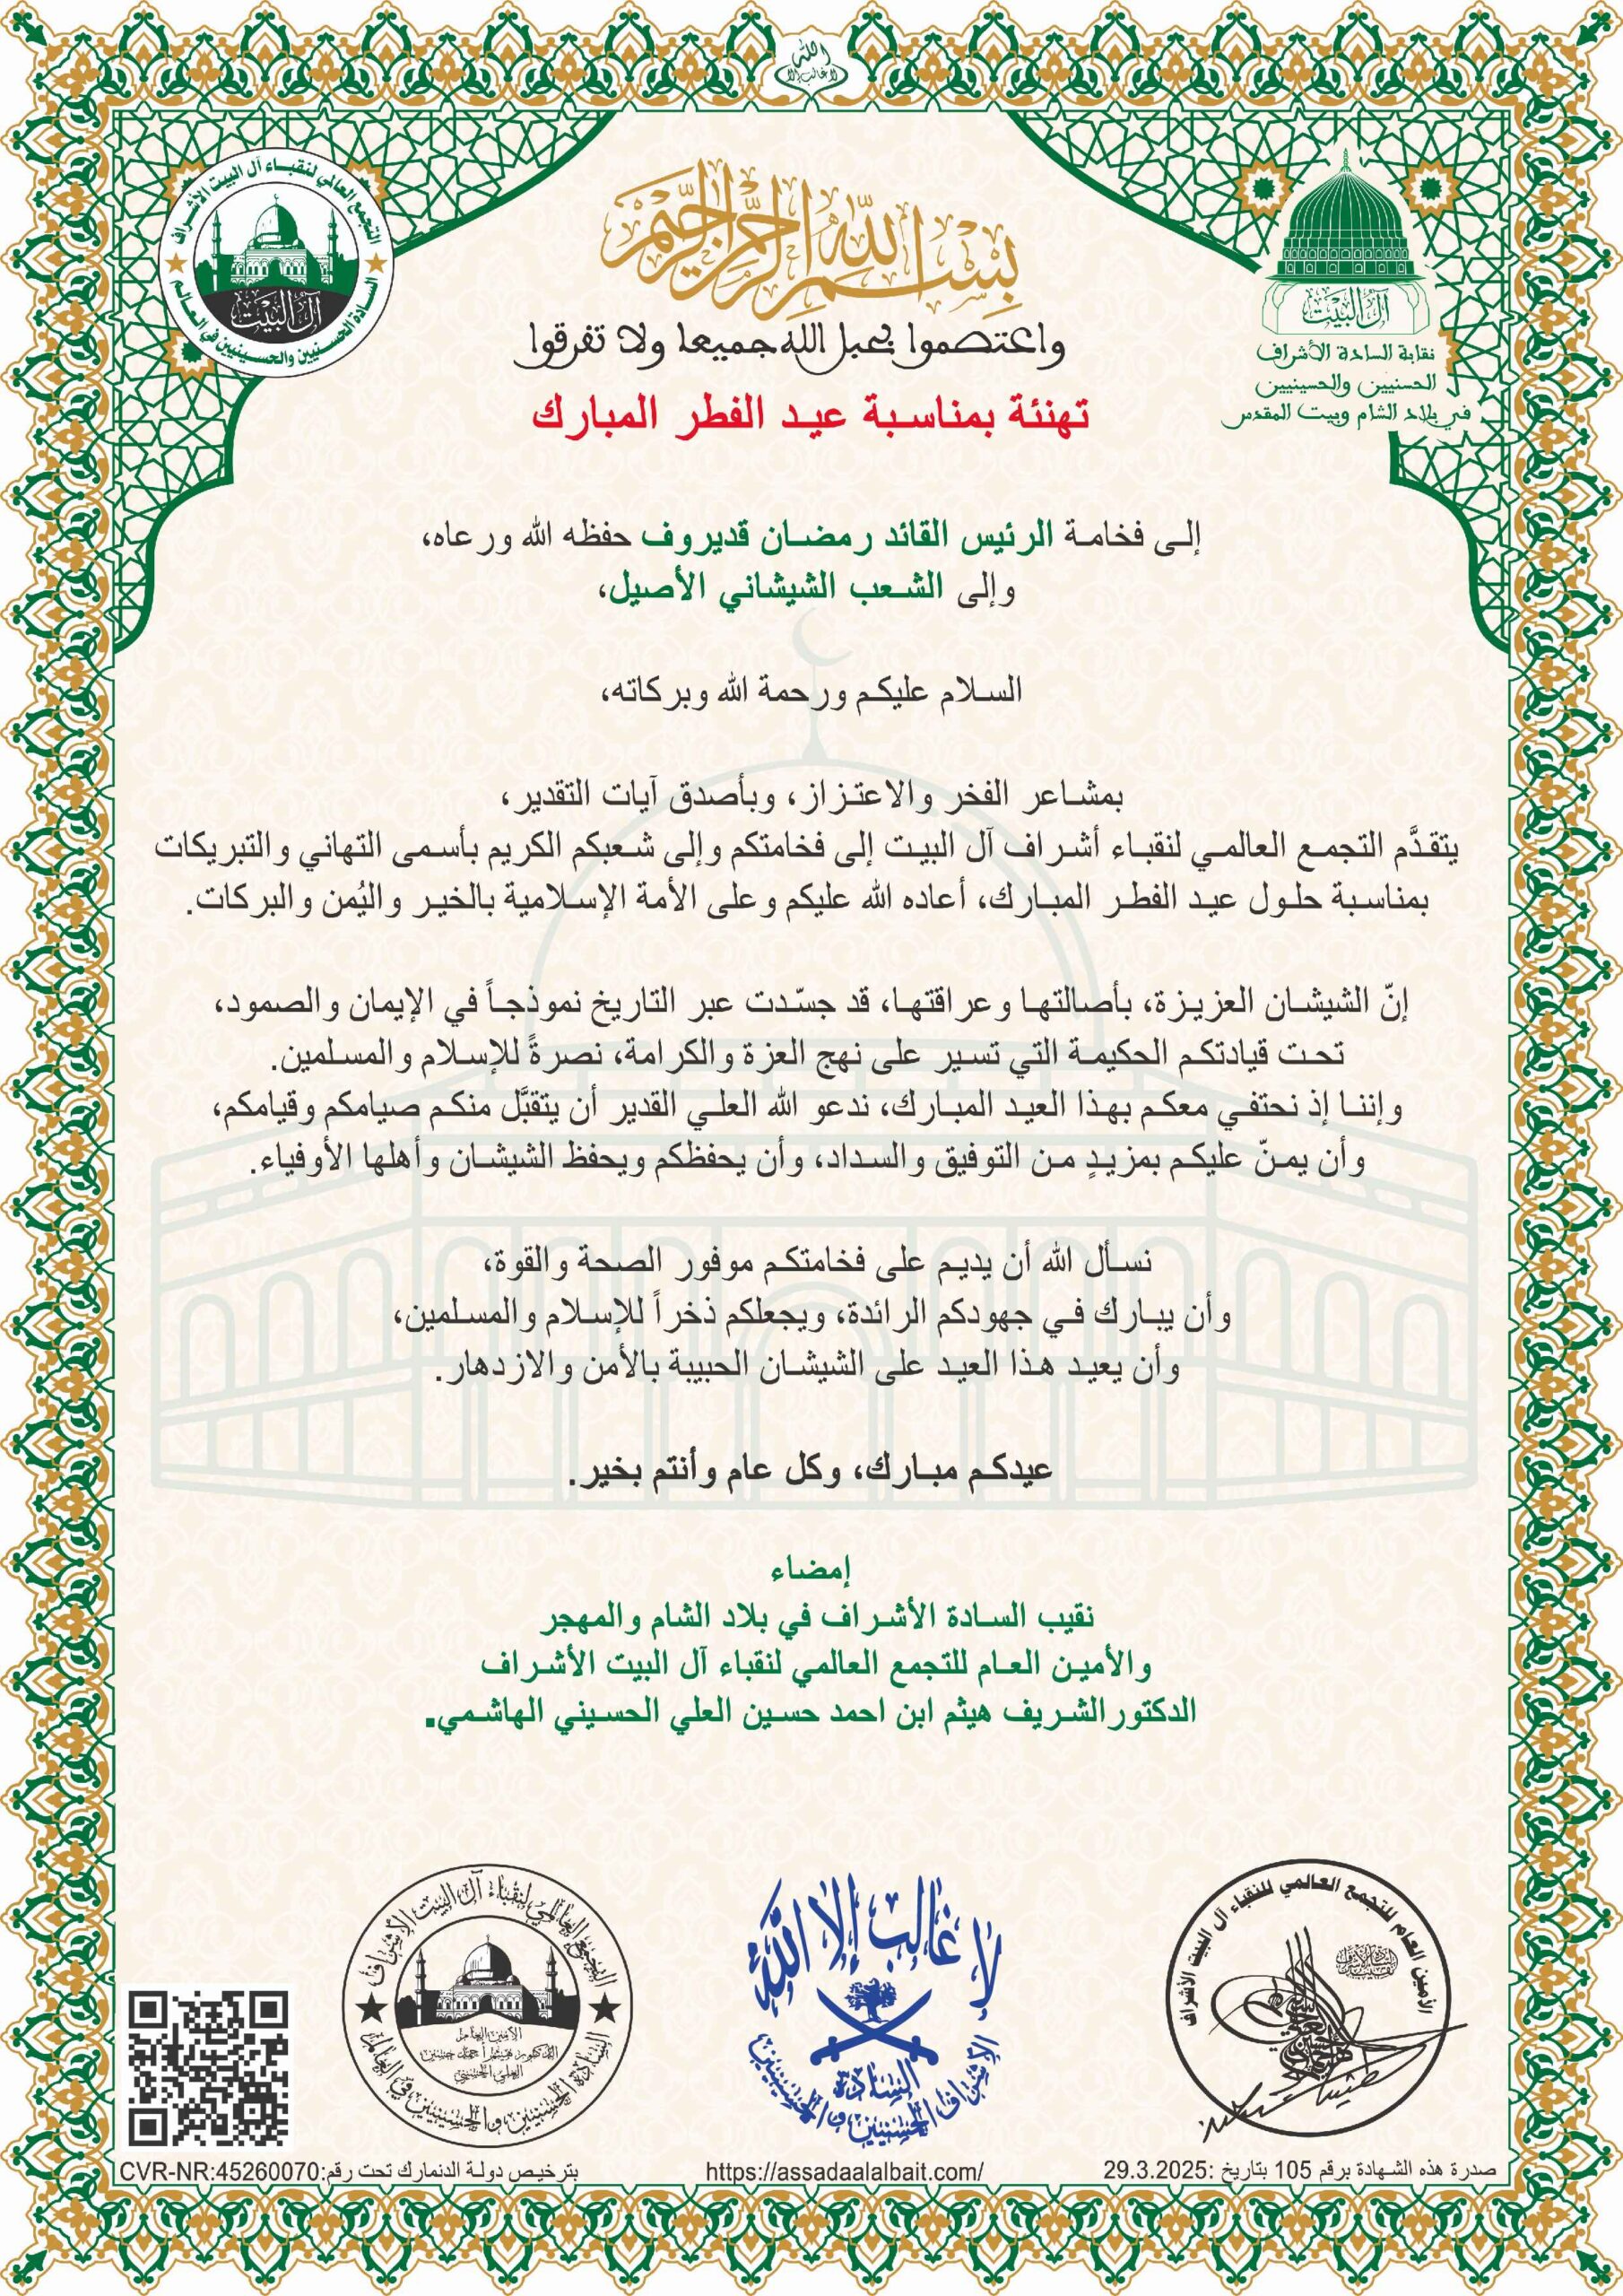 الله
لا غالب إلا
التجمع العالمي لنقباء آل البيت الأشراف
آل البيت
السادة الحسنيين والحسينيين في العالم
بسم الله الرحمن الرحيم
واعتصموا بحبل الله جميعا ولا تفرقوا
تهنئة بمناسبة عيد الفطر المبارك
آل البيت
نقابة السادة الأشراف
الحسنيين والحسينيين
في بلاد الشام وبيت المقدس
إلى فخامة الرئيس القائد رمضان قديروف حفظه الله ورعاه،
وإلى الشعب الشيشاني الأصيل،
السلام عليكم ورحمة الله وبركاته،
بمشاعر الفخر والاعتزاز، وبأصدق آيات التقدير،
يتقدَّم التجمع العالمي لنقباء أشراف آل البيت إلى فخامتكم وإلى شعبكم الكريم بأسمى التهاني والتبريكات
بمناسبة حلول عيد الفطر المبارك، أعاده الله عليكم وعلى الأمة الإسلامية بالخير واليُمن والبركات.
إنّ الشيشان العزيزة، بأصالتها وعراقتها، قد جسّدت عبر التاريخ نموذجاً في الإيمان والصمود،
تحت قيادتكم الحكيمة التي تسير على نهج العزة والكرامة، نصرةً للإسلام والمسلمين.
وإننا إذ نحتفي معكم بهذا العيد المبارك، ندعو الله العلي القدير أن يتقبَّل منكم صيامكم وقيامكم،
وأن يمنّ عليكم بمزيدٍ من التوفيق والسداد، وأن يحفظكم ويحفظ الشيشان وأهلها الأوفياء.
نسأل الله أن يديم على فخامتكم موفور الصحة والقوة،
وأن يبارك في جهودكم الرائدة، ويجعلكم ذخراً للإسلام والمسلمين،
وأن يعيد هذا العيد على الشيشان الحبيبة بالأمن والازدهار.
عيدكم مبارك، وكل عام وأنتم بخير.
إمضاء
نقيب السادة الأشراف في بلاد الشام والمهجر
والأمين العام للتجمع العالمي لنقباء آل البيت الأشراف
الدكتور الشريف هيثم ابن احمد حسين العلي الحسيني الهاشمي.
الأمين العام للتجمع العالمي للنقباء آل البيت الأشراف
لا غالب إلا الله
السادة
الأشراف الحسنيين والحسينيين
التجمع العالمي لنقباء آل البيت الأشراف
الأمين العام
الدكتور هيثم أحمد حسين
العلي الحسيني
السادة الحسنيين والحسينيين في العالم
صدرة هذه الشهادة برقم 105 بتاريخ :29.3.2025
https://assadaalalbait.com/
بترخيص دولة الدنمارك تحت رقم:CVR-NR:45260070